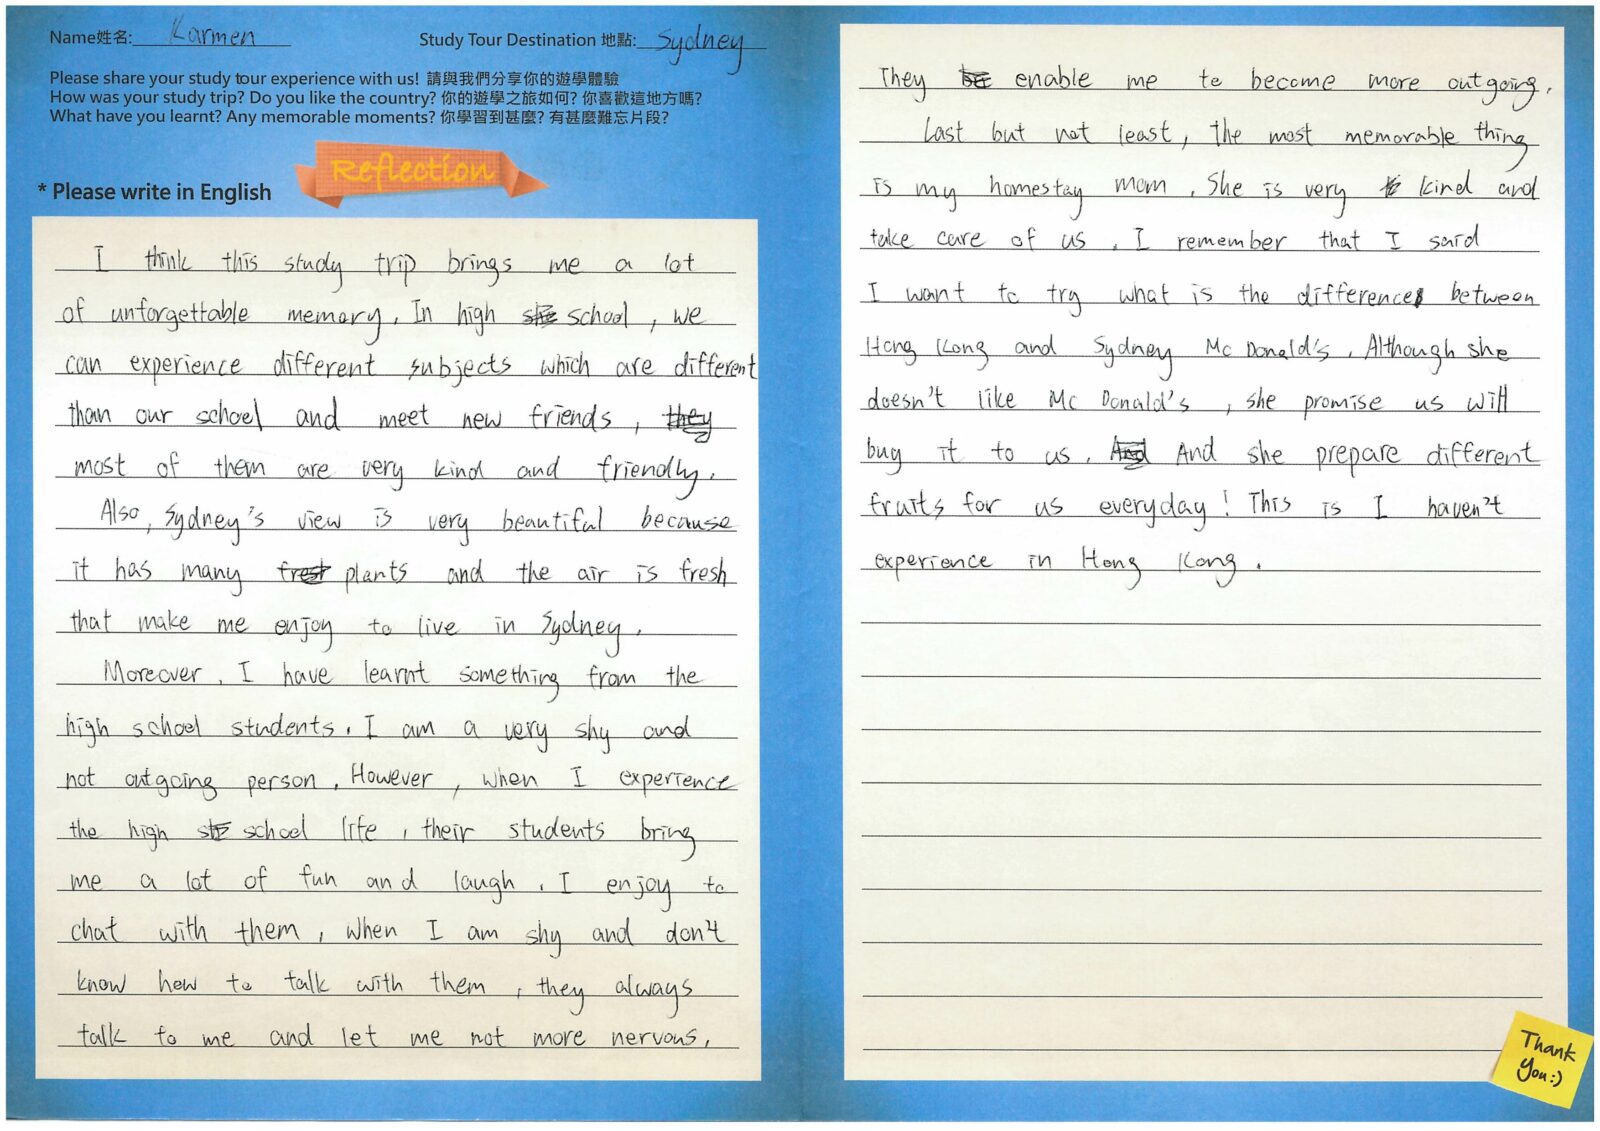 Name姓名: Karmen
Study Tour Destination 地點: Sydney
Please share your study tour experience with us! 請與我們分享你的遊學體驗
How was your study trip? Do you like the country? 你的遊學之旅如何? 你喜歡這地方嗎?
What have you learnt? Any memorable moments? 你學習到甚麼? 有甚麼難忘片段?
Reflection
* Please write in English
I think this study trip brings me a lot
of unforgettable memory. In high school, we
can experience different subjects which are different
than our school and meet new friends, they
most of them are very kind and friendly.
Also, Sydney's view is very beautiful because
it has many fresh plants and the air is fresh
that make me enjoy to live in Sydney.
Moreover, I have learnt something from the
high school students. I am a very shy and
not outgoing person. However, when I experience
the high school life, their students bring
me a lot of fun and laugh. I enjoy to
chat with them, when I am shy and don't
know how to talk with them, they always
talk to me and let me not more nervous.
They be enable me to become more outgoing.
Last but not least, the most memorable thing
is my homestay mom. She is very kind and
take care of us. I remember that I said
I want to try what is the difference between
Hong Kong and Sydney Mc Donald's. Although she
doesn't like Mc Donald's, she promise us will
buy it to us. And And she prepare different
fruits for us everyday! This is I haven't
experience in Hong Kong.
Thank
You:)